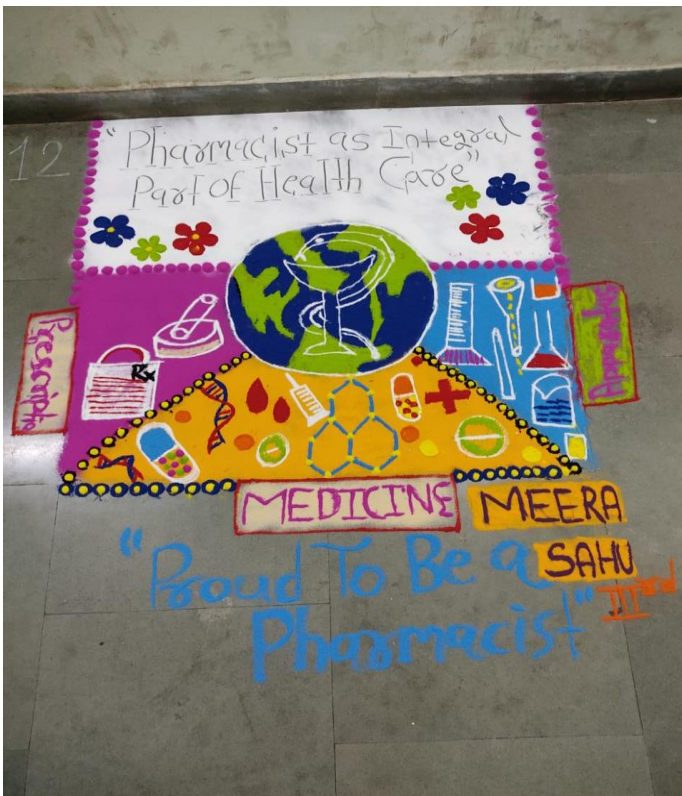 12
"Pharmacist as Integral
Part of Health Care"
Prescriptio
Rx
Apparatus
MEDICINE
MEERA
SAHU
"Proud To Be a
Pharmacist"
IIIrd